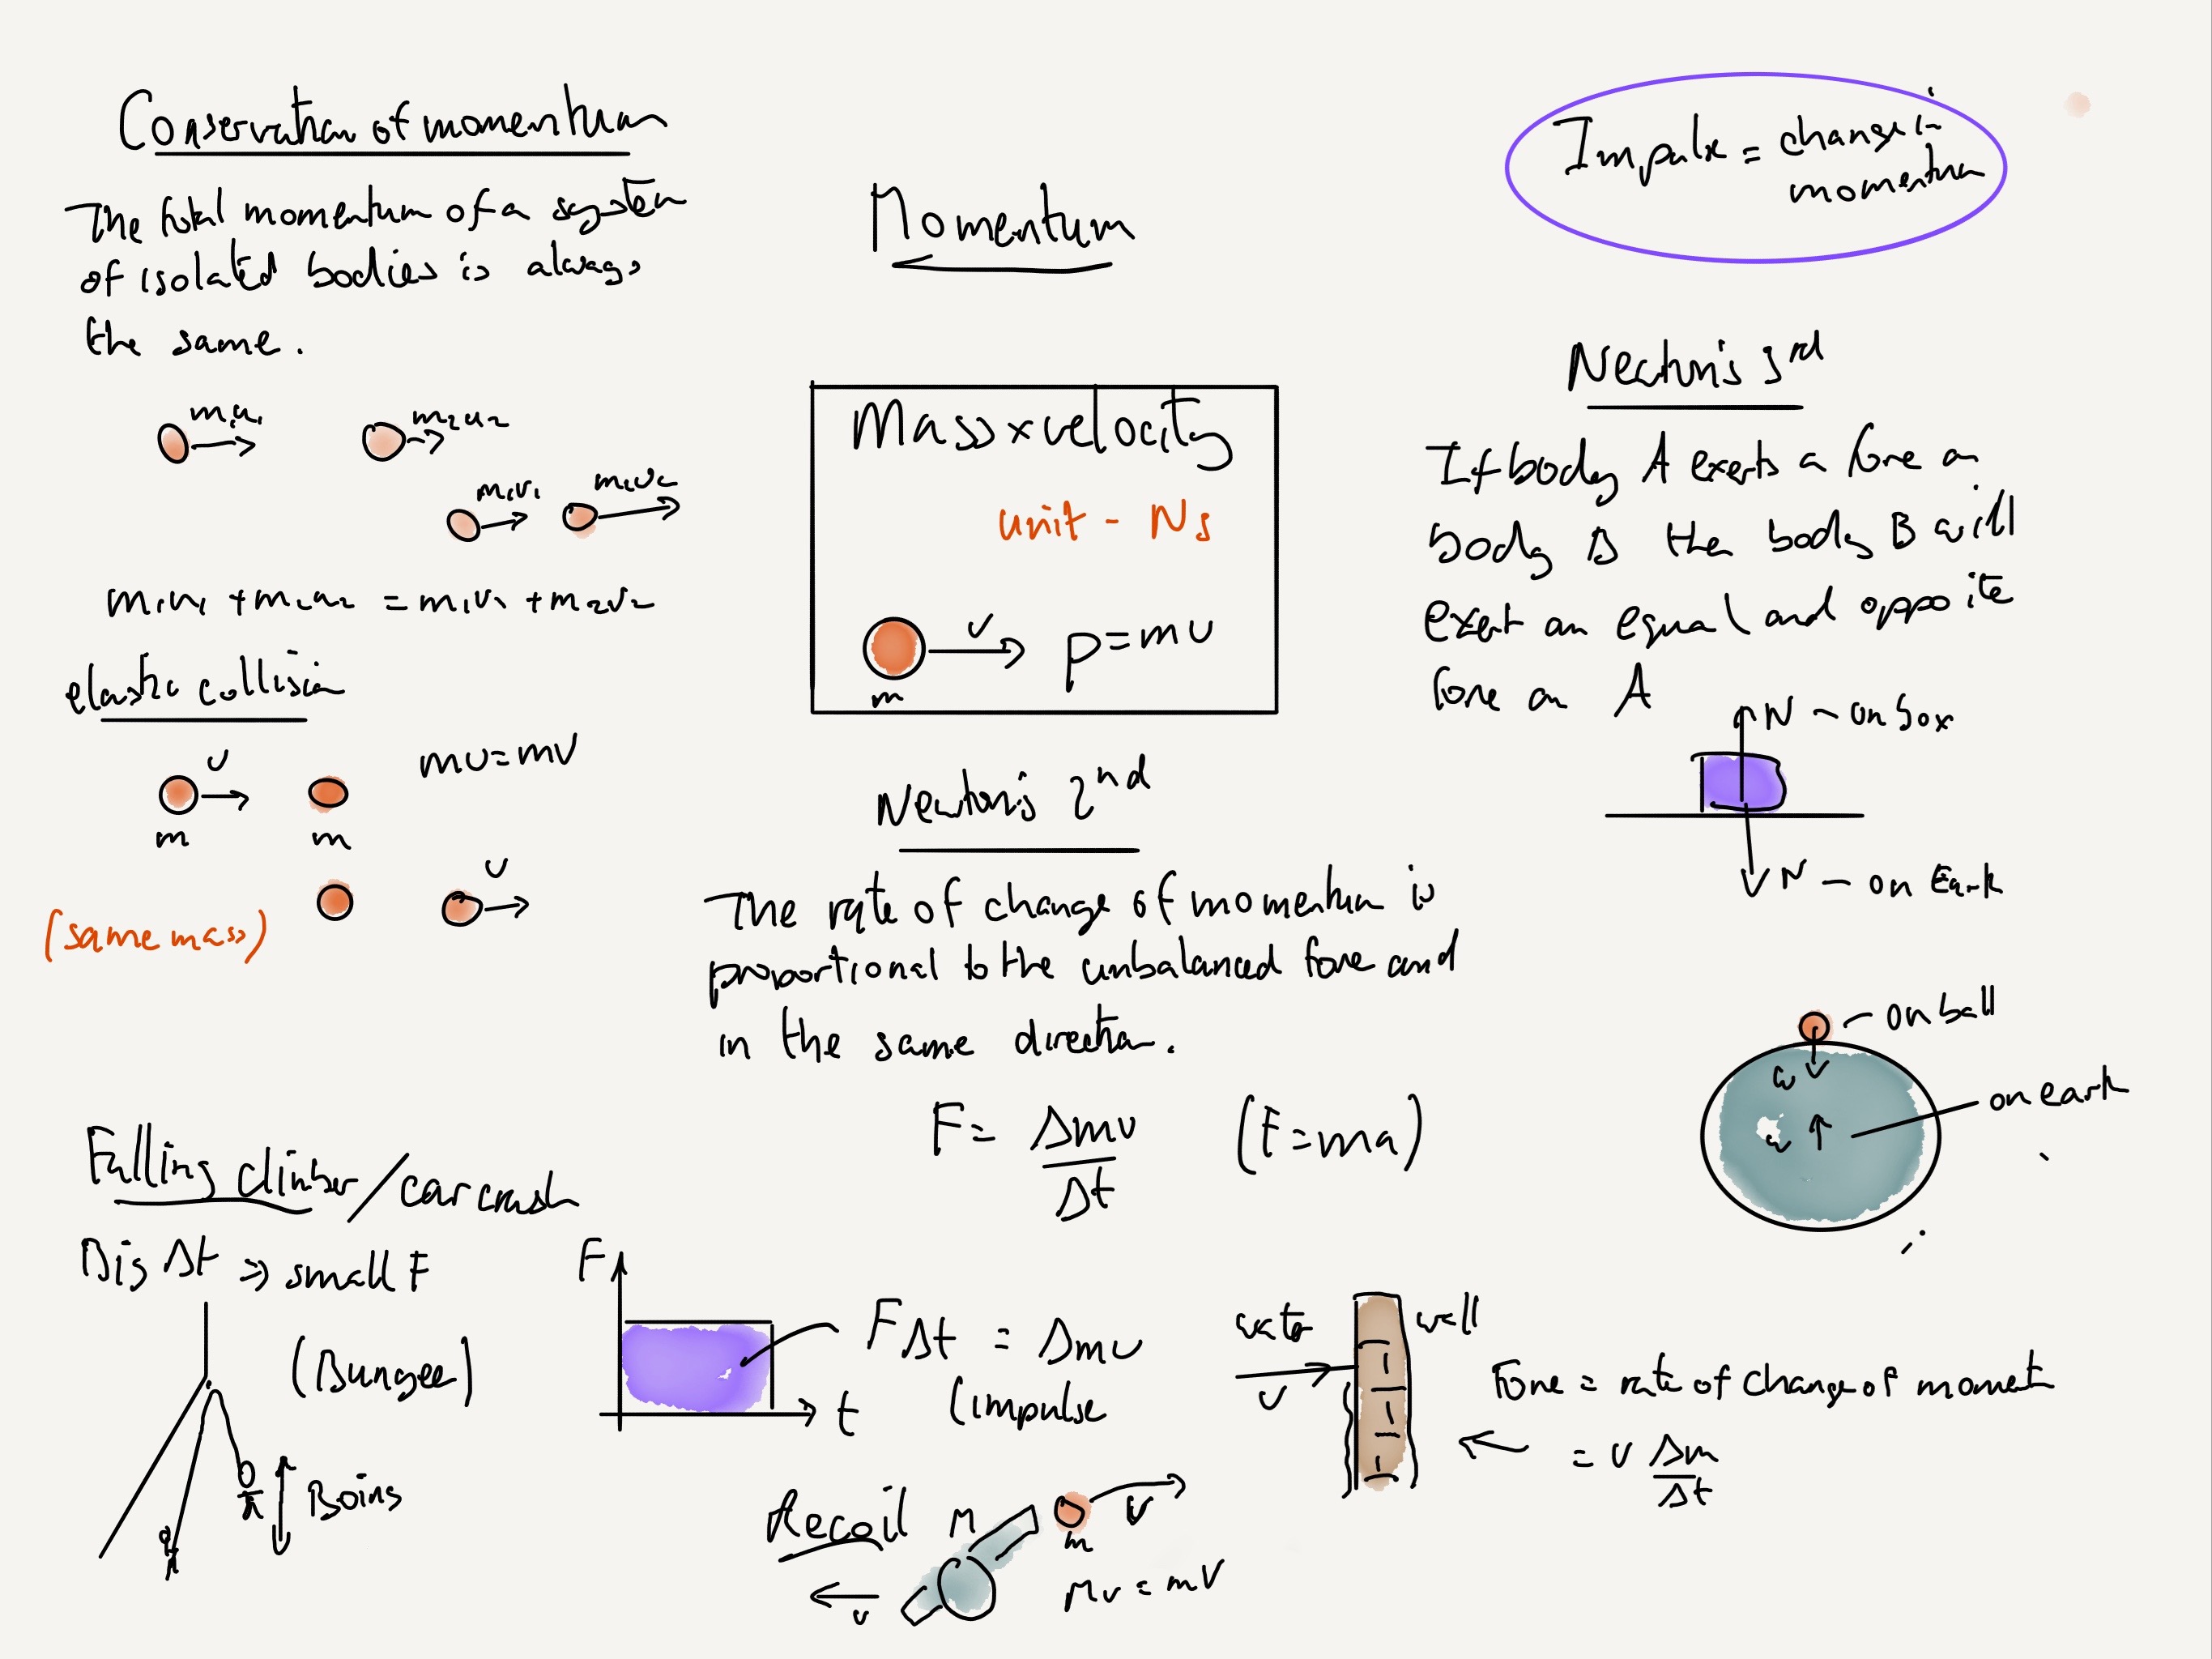 Conservation of momentum
The total momentum of a system
of isolated bodies is always
the same.
m₁u₁
m₂u₂
m₁v₁
m₁v₂
m₁u₁ + m₂u₂ = m₁v₁ + m₂v₂
elastic collision
v
mv = mv
m
m
v
(same mass)
Falling climber / car crash
Big Δt ⇒ small F
(Bungee)
Boing
Momentum
Mass x velocity
unit - Ns
v
p = mv
m
Newton's 2nd
The rate of change of momentum is
proportional to the unbalanced force and
in the same direction.
F = Δmv/Δt (F = ma)
F
FΔt = Δmv
(impulse
t
Recoil
M
v
m
v
Mv = mV
Impulse = change in
momentum
Newton's 3rd
If body A exerts a force on
body B the body B will
exert an equal and opposite
force on A
N - on box
N - on Earth
on ball
ω
on earth
ω
water
wall
v
Force = rate of change of moment
= v Δm/Δt